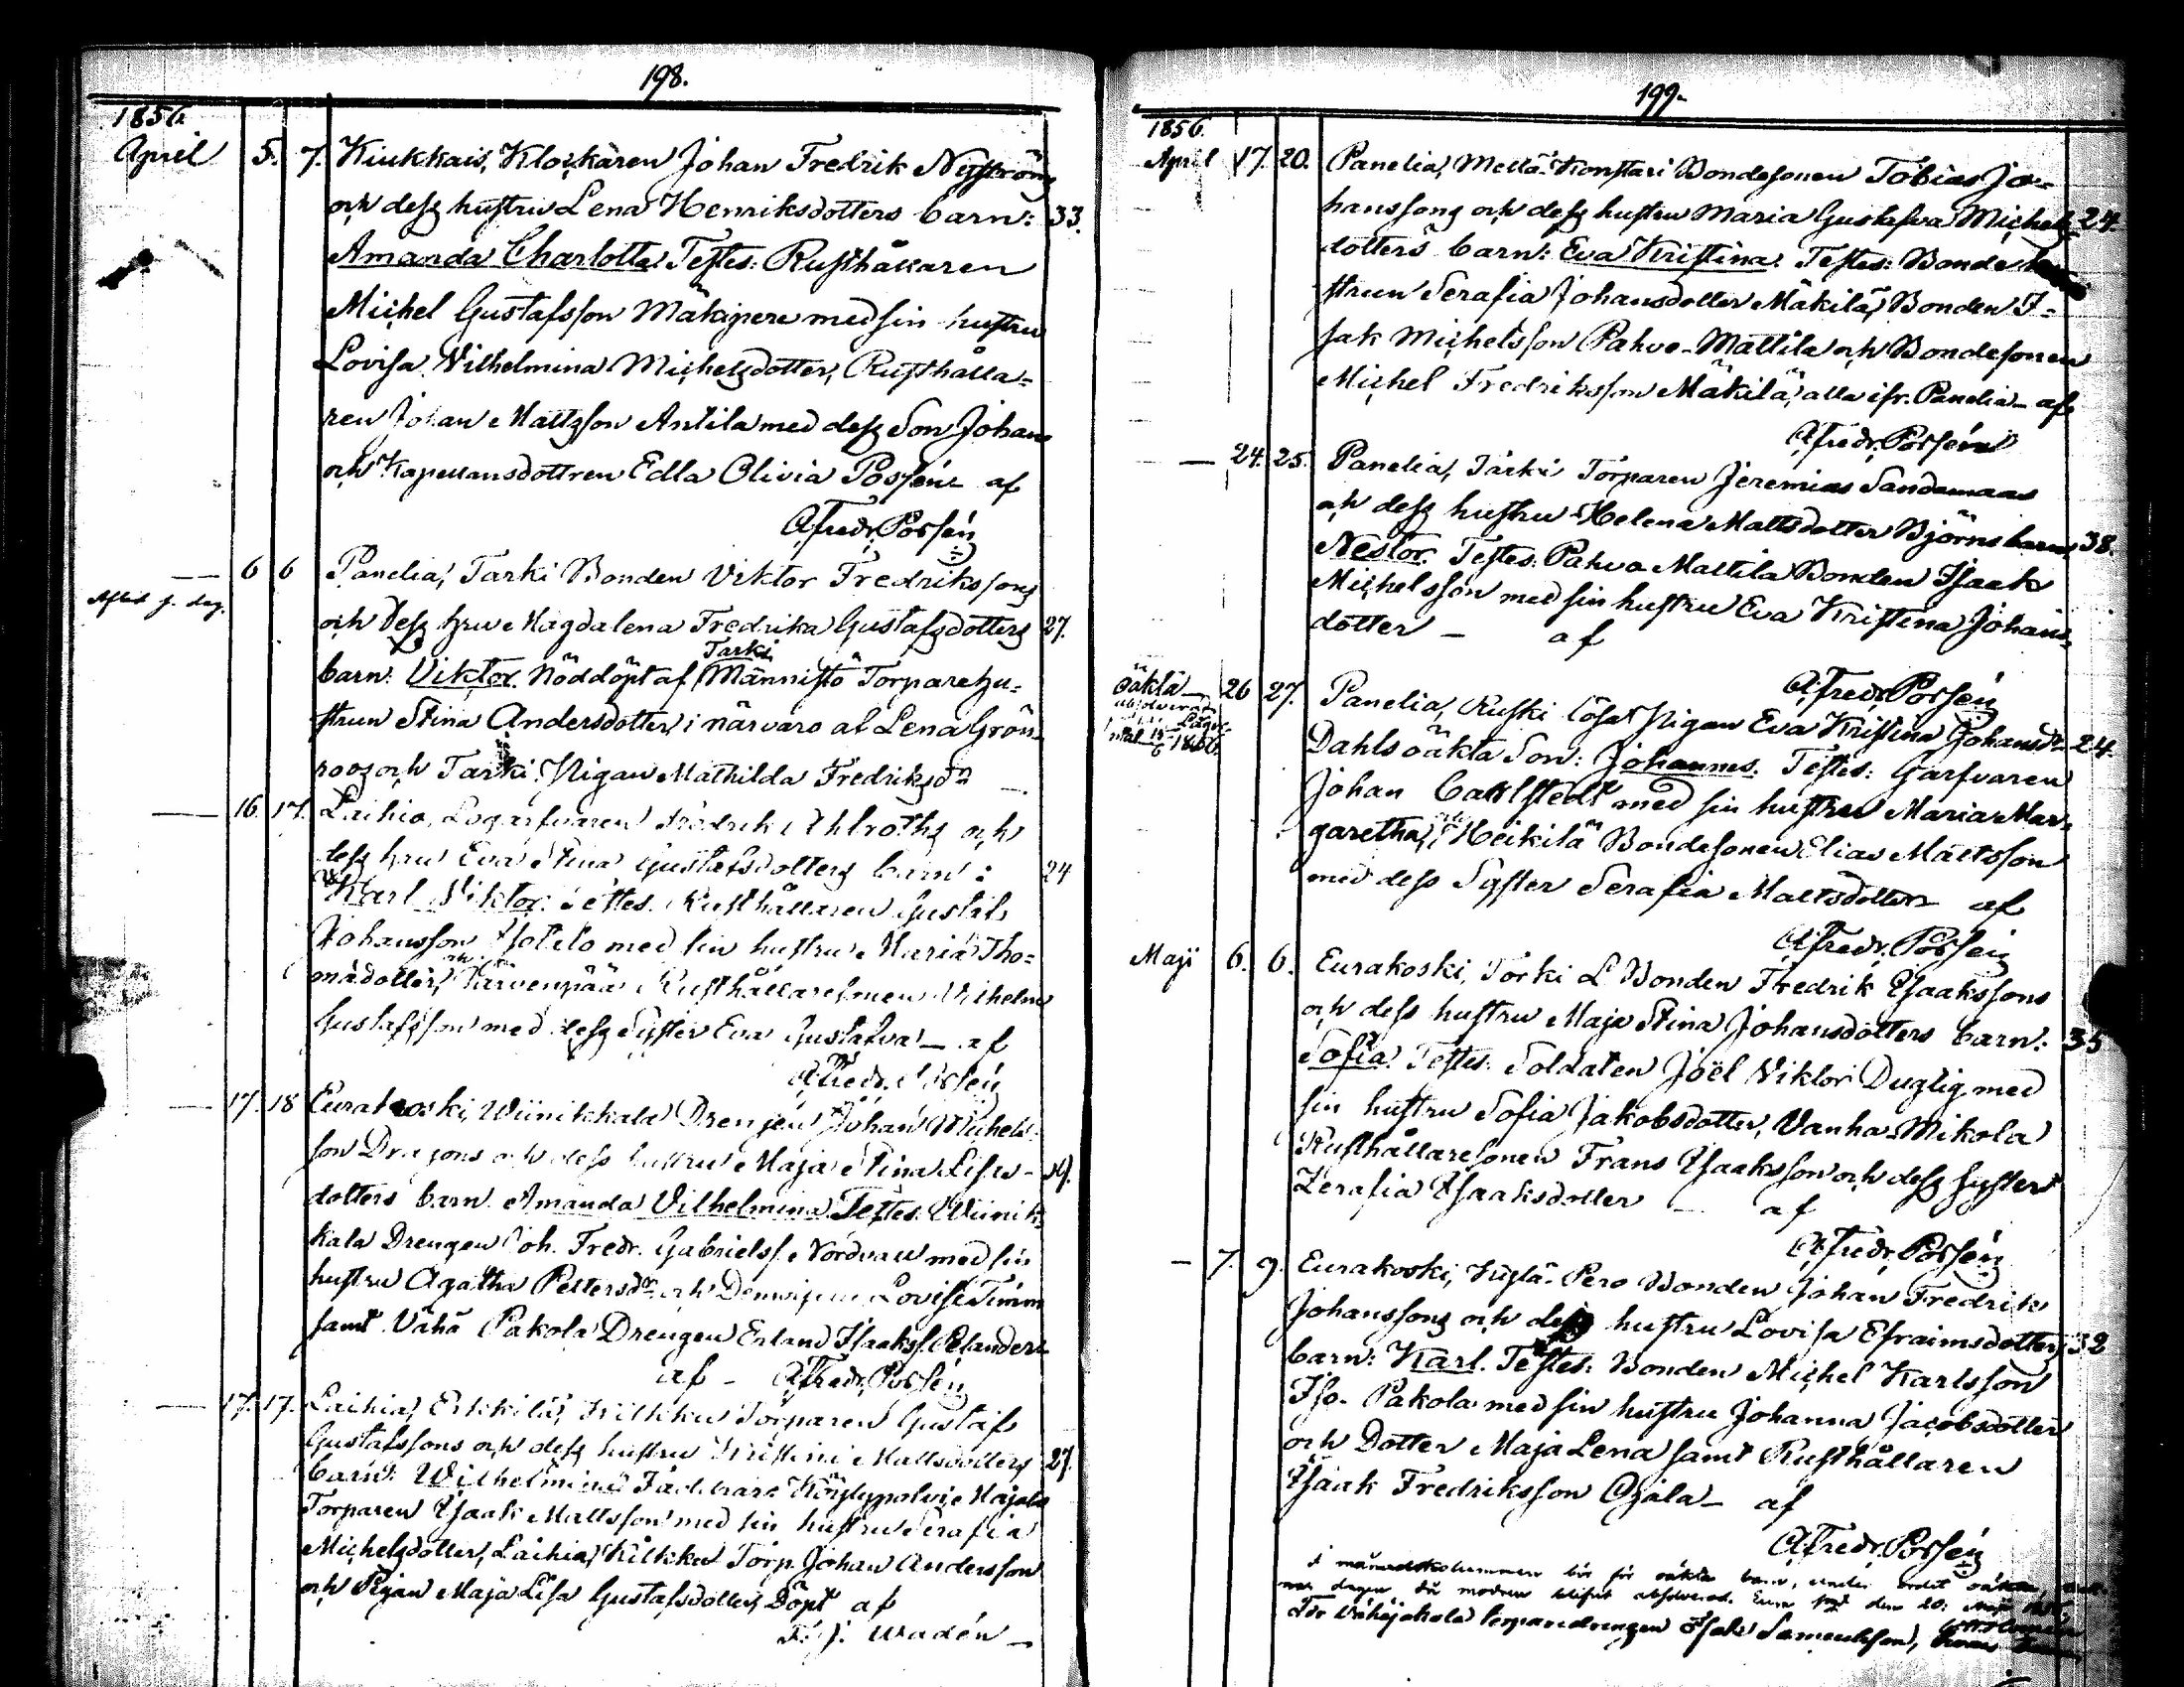 198.
1856.
April 5. 7. Kiukkais, Klockaren Johan Fredrik Nyström
och dess hustru Lena Henriksdotters barn: 33.
Amanda Charlotta. Testes: Rusthållaren
Michel Gustafsson Mäkipere med sin hustru
Lovisa Vilhelmina Michelsdotter, Rusthålla-
ren Johan Mattsson Antila med dess Son Johan
och Kapellansdottren Edla Olivia Possén af
A. Fredr. Possén
— 6 6 Panelia, Tarki Bonden Viktor Fredrikssons
Aflid s. dag.
och dess hru Magdalena Fredrika Gustafsdotters 27.
Tarki
barn: Viktor. Nöddöpt af Männistö Torparehu-
strun Stina Andersdotter, i närvaro af Lena Grön-
roos och Tarki Pigan Mathilda Fredriksdr —
— 16. 17. Laihia, Logarfvaren Fredrik Ahlroths och
dess hru Eva Stina Gustafsdotters barn: 24
Karl Viktor. Testes. Rusthållaren Gustaf
Johansson Isotalo med sin hustru Maria Tho-
och
mädotter, Järvenpää Rusthållaresonen Vilhelm
Gustafsson med dess Syster Eva Gustafva — af
A. Fredr. Possén
— 17. 18 Eurakoski, Wiinikkala Drengen Johan Michels-
son Dragons och dess hustru Maja Stina Lisas-
dotters barn Amanda Vilhelmina. Testes. Wiinik-
kala Drengen Joh. Fredr. Gabrielss. Nordvall med sin
hustru Agatha Pettersdr och Lovisa Timm
samt Vähä Pakola Drengen Erland Isaakss. Elander
af — A. Fredr. Possén
— 17. 17. Laihia, Erkkilä, Kilkku Torparen Gustaf
Gustafssons och dess hustru Kristina Mattsdotters 27.
barn: Wilhelmina Faddrar: Köylypolvi
Torparen Isaak Mattsson med sin hustru Serafia
Michelsdotter, Laihia, Kilkku Torp. Johan Andersson
och Pigan Maja Lisa Gustafsdotter. Döpt af
F. J. Wadén —
199.
1856.
April 17. 20. Panelia, Mellä-Konstari Bondesonen Tobias Jo-
hanssons och dess hustru Maria Gustafva Michels- 24.
dotters barn: Eva Kristina. Testes: Bonde
strun Serafia Johansdotter Mäkilä, Bonden I-
sak Michelsson Pahvo-Mattila och Bondesonen
Michel Fredriksson Mäkilä, alla ifr. Panelia — af
A. Fredr. Possén
— 24. 25. Panelia, Tarki Torparen Jeremias Sandemaas
och dess hustru Helena Mattsdotter Björns barn 38.
Nestor. Testes. Pahvo Mattila Bonden Isaak
Michelsson med sin hustru Eva Kristina Johans-
dotter — af
A. Fredr. Possén
oäkta — 26 27. Panelia, Ruski lösa Pigan Eva Kristina Johansdr 24.
Dahls oäkta Son: Johannes. Testes: Garfvaren
Johan Carlstedt med sin hustru Maria Mar-
garetha, Heikilä Bondesonen Elias Mattsson
med dess Syster Serafia Mattsdotter — af
A. Fredr. Possén
Maji 6. 6. Eurakoski, Torki L Bonden Fredrik Isaakssons
och dess hustru Maja Stina Johansdotters barn: 35
Sofia. Testes: Soldaten Joël Viktor Duglig med
sin hustru Sofia Jakobsdotter, Vanha-Mikola
Rusthållaresonen Frans Isaaksson och dess syster
Zerafia Isaaksdotter — af
A. Fredr. Possén
— 7. 9. Eurakoski, Pero Bonden Johan Fredrik
Johanssons och dess hustru Lovisa Efraimsdotters 32
barn: Karl. Testes: Bonden Michel Karlsson
Iso-Pakola med sin hustru Johanna Jacobsdotter
och Dotter Maja Lena samt Rusthållaren
Isaak Fredriksson Ojala — af
A. Fredr. Possén
I månadskolumnen bör för oäkta barn, under ordet oäkta,
dagen då modren blifvit absolverad. Eura den 20.